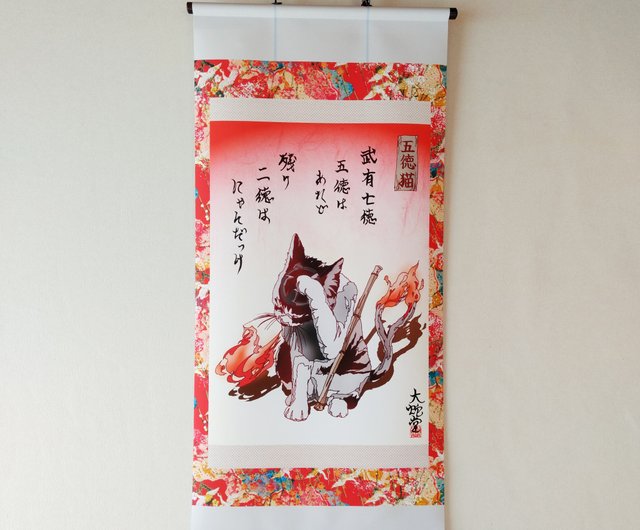 五徳猫
武有七徳
五徳は
あれど
残り
二徳は
にゃんだっけ
大蛇堂